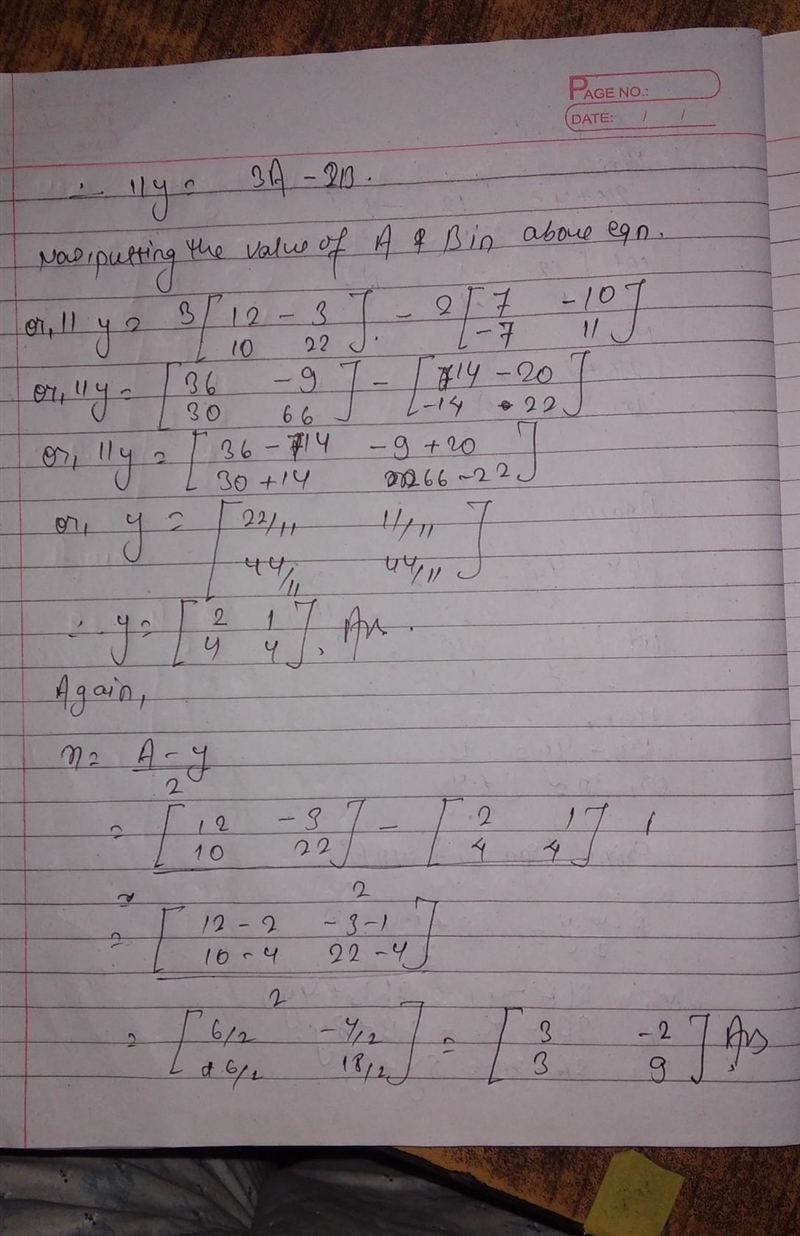 PAGE NO.:
DATE: / /
∴ 11y = 3A - 2B.
Now, putting the value of A & B in above eqn.
or, 11 y = 3 [ 12 - 3 ] - 2 [ 7 -10 ]
[ 10 22 ] [ -7 11 ]
or, 11y = [ 36 -9 ] - [ 14 -20 ]
[ 30 66 ] [ -14 22 ]
or, 11y = [ 36 - 14 -9 + 20 ]
[ 30 + 14 66 - 22 ]
or, y = [ 22/11 11/11 ]
[ 44/11 44/11 ]
∴ y = [ 2 1 ]. Ans.
[ 4 4 ]
Again,
x = A - y
2
= [ 12 -3 ] - [ 2 1 ]
[ 10 22 ] [ 4 4 ]
2
= [ 12 - 2 -3 -1 ]
[ 10 - 4 22 - 4 ]
2
= [ 6/2 -4/2 ] = [ 3 -2 ] Ans
[ 6/2 18/2 ] [ 3 9 ]